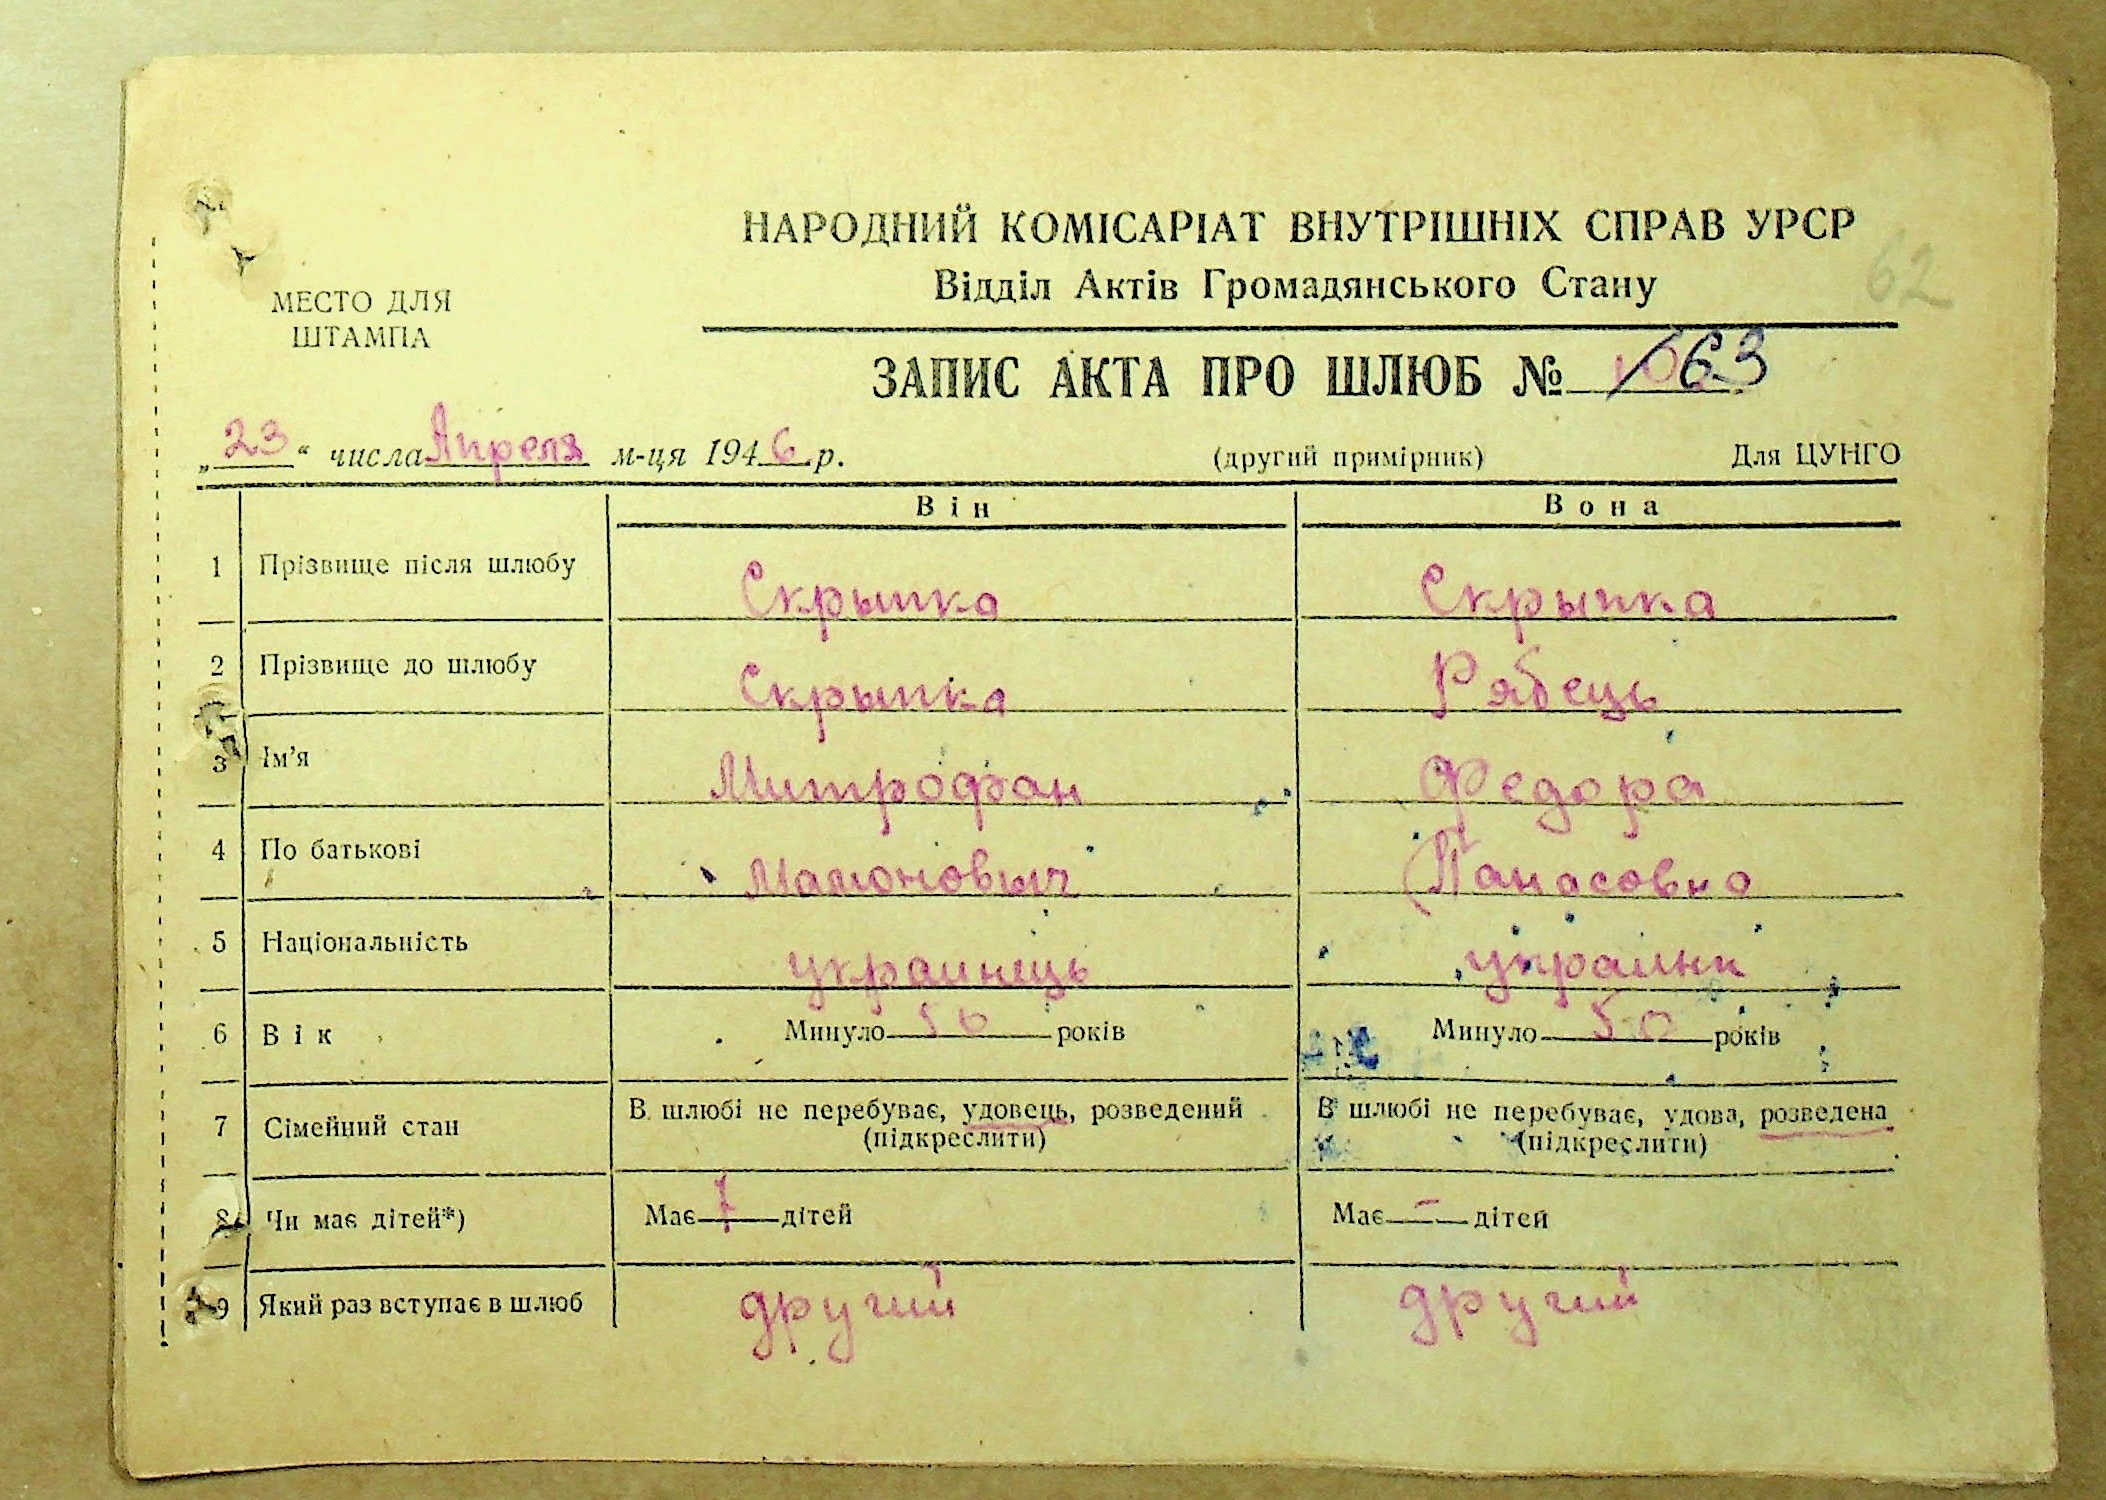 НАРОДНИЙ КОМІСАРІАТ ВНУТРІШНІХ СПРАВ УРСР
Відділ Актів Громадянського Стану
62
МЕСТО ДЛЯ
ШТАМПА
ЗАПИС АКТА ПРО ШЛЮБ № 63
„23“ числа Апреля м-ця 1946 р.
(другий примірник) Для ЦУНГО
Він Вона
1 Прізвище після шлюбу Скрыпка Скрыпка
2 Прізвище до шлюбу Скрыпка Рябець
3 Ім'я Митрофан Федора
4 По батькові Мамонович Панасовна
5 Національність украинець украинк
6 Вік Минуло 56 років Минуло 50 років
7 Сімейний стан В шлюбі не перебуває, удовець, розведений (підкреслити) В шлюбі не перебуває, удова, розведена (підкреслити)
8 Чи має дітей*) Має 7 дітей Має — дітей
9 Який раз вступає в шлюб другий другий